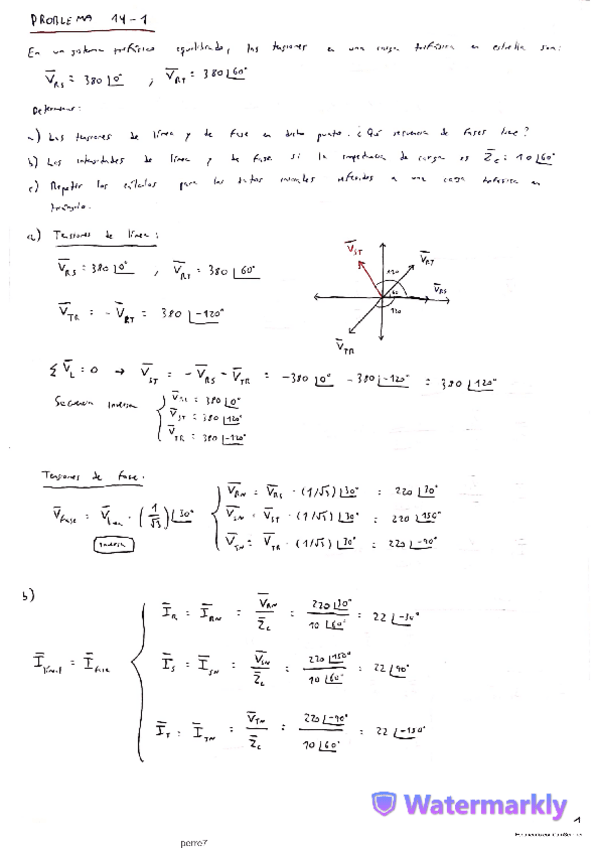 PROBLEMA 14-1
En un sistema trifásico equilibrado, las tensiones en una carga trifásica en estrella son:
V̄RS = 380 ∠0° , V̄RT = 380 ∠60°
Determinar:
a) Las tensiones de línea y de fase en dicho punto. ¿Qué secuencia de fases tiene?
b) Las intensidades de línea y de fase si la impedancia de carga es Z̄c = 10 ∠60°
c) Repetir los cálculos para los datos iniciales referidos a una carga trifásica en
triángulo.
a) Tensiones de línea:
V̄RS = 380 ∠0° , V̄RT = 380 ∠60°
V̄TR = -V̄RT = 380 ∠-120°
V̄ST
V̄RT
120
60
V̄RS
120
V̄TR
Σ V̄L = 0 → V̄ST = -V̄RS - V̄TR = -380 ∠0° - 380 ∠-120° = 380 ∠120°
Secuencia inversa
V̄RS = 380 ∠0°
V̄ST = 380 ∠120°
V̄TR = 380 ∠-120°
Tensiones de fase:
V̄fase = V̄línea · (1/√3) ∠30°
inversa
V̄RN = V̄RS · (1/√3) ∠30° = 220 ∠30°
V̄SN = V̄ST · (1/√3) ∠30° = 220 ∠150°
V̄TN = V̄TR · (1/√3) ∠30° = 220 ∠-90°
b)
Īlínea = Īfase
ĪR = ĪRN = V̄RN / Z̄c = 220 ∠30° / 10 ∠60° = 22 ∠-30°
ĪS = ĪSN = V̄SN / Z̄c = 220 ∠150° / 10 ∠60° = 22 ∠90°
ĪT = ĪTN = V̄TN / Z̄c = 220 ∠-90° / 10 ∠60° = 22 ∠-150°
Watermarkly
1
perre7